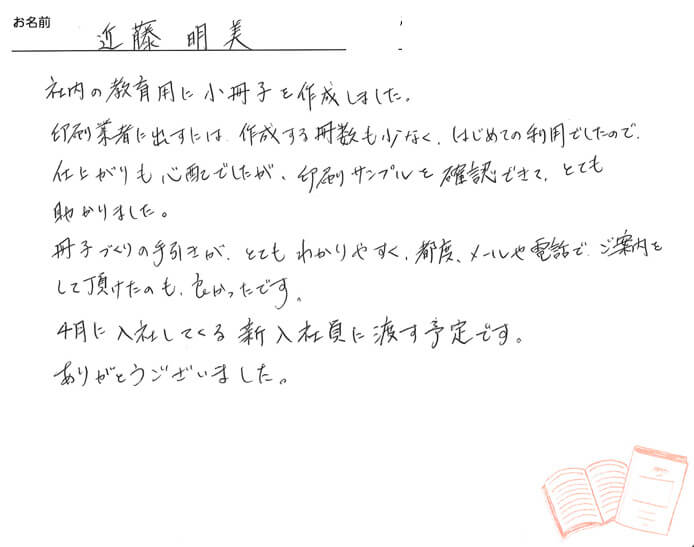 お名前 近藤 明美
社内の教育用に小冊子を作成しました。
印刷業者に出すには、作成する冊数も少なく、はじめての利用でしたので、
仕上がりも心配でしたが、印刷サンプルを確認できて、とても
助かりました。
冊子づくりの手引きが、とてもわかりやすく、都度、メールや電話で、ご案内を
して頂けたのも、良かったです。
4月に入社してくる新入社員に渡す予定です。
ありがとうございました。